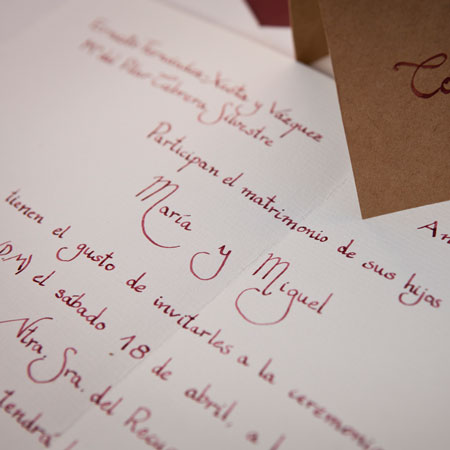 Fernández Xusta y Vázquez
Mª del Pilar Cabrera Silvestre
Participan el matrimonio de sus hijas
María y Miguel
tienen el gusto de invitarles a la ceremonia
(D.M) el sábado 18 de abril, a l
Ntra. Sra. del Recue
tendrá l
Co
An